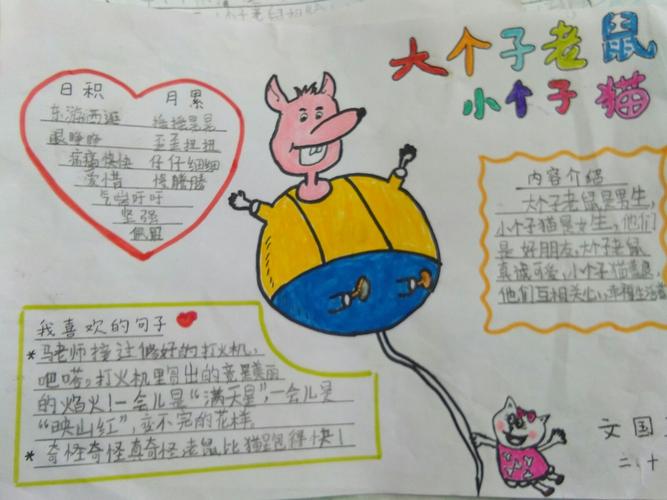 大个子老鼠
小个子猫
日积 月累
东游西逛 摇摇晃晃
眼睁睁 歪歪扭扭
痛痛快快 仔仔细细
爱惜 慢腾腾
气喘吁吁
坚强
佩服
内容介绍
大个子老鼠是男生,
小个子猫是女生,他们
是好朋友,大个老鼠
真诚可爱,小个子猫善良,
他们互相关心,幸福生活着
我喜欢的句子
*马老师接过修好的打火机,
吧嗒。打火机里冒出的竟是美丽
的焰火!一会儿是“满天星”,一会儿是
“映山红”,变不完的花样。
*奇怪奇怪真奇怪老鼠比猫跑得快!
文国
二、十